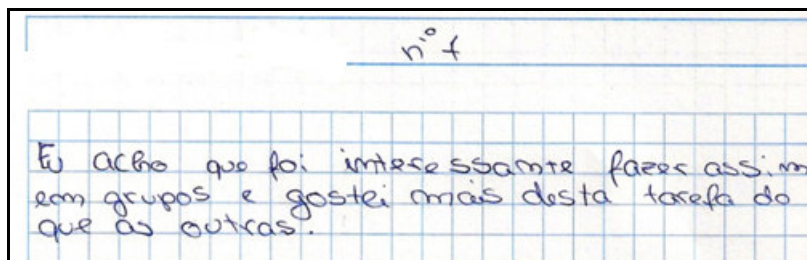 nº 7
Eu acho que foi interessante fazer assim
em grupos e gostei mais desta tarefa do
que as outras.